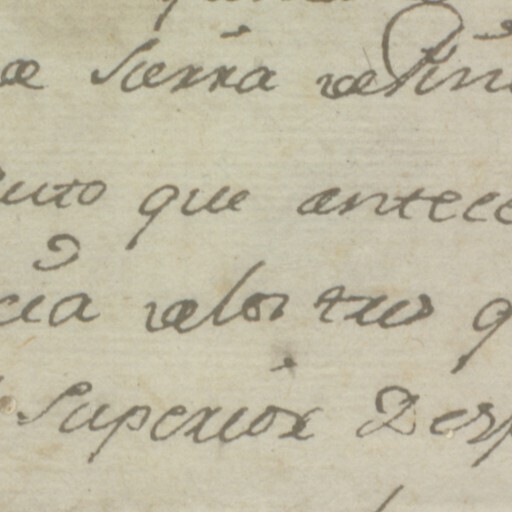 de Sierra de Pin
uto que antece
cia de los tres q
Superior Desp